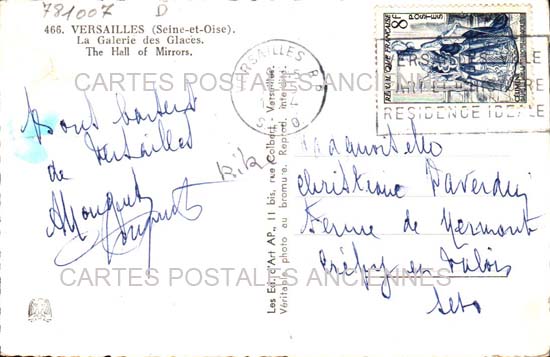 781007 D
466. VERSAILLES (Seine-et-Oise).
La Galerie des Glaces.
The Hall of Mirrors.
CARTES POSTALES ANCIENNES
Bons baisers
de Versailles
Les Ed. d'Art AP., 11 bis, rue Colbert - Versailles.
Véritable photo au bromure. Reprod. interdite.
VERSAILLES
8F
POSTES
REPUBLIQUE FRANÇAISE
RESIDENCE IDEALE
Mademoiselle
Christiane
Ferme de
Crépy en Valois
CARTES POSTALES ANCIENNES